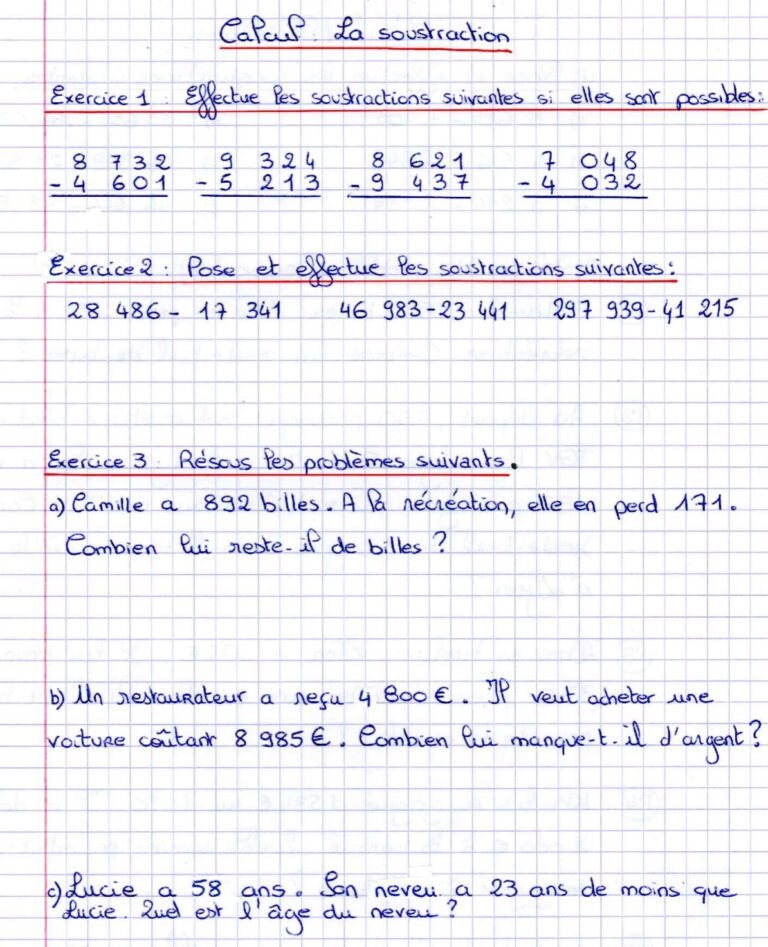 Calcul : La soustraction
Exercice 1 : Effectue les soustractions suivantes si elles sont possibles :
8 732 9 324 8 621 7 048
- 4 601 - 5 213 - 9 437 - 4 032
Exercice 2 : Pose et effectue les soustractions suivantes :
28 486 - 17 341 46 983 - 23 441 297 939 - 41 215
Exercice 3 : Résous les problèmes suivants.
a) Camille a 892 billes. A la récréation, elle en perd 171.
Combien lui reste-il de billes ?
b) Un restaurateur a reçu 4 800 €. Il veut acheter une
voiture coûtant 8 985 €. Combien lui manque-t-il d'argent ?
c) Lucie a 58 ans. Son neveu a 23 ans de moins que
Lucie. Quel est l'âge du neveu ?